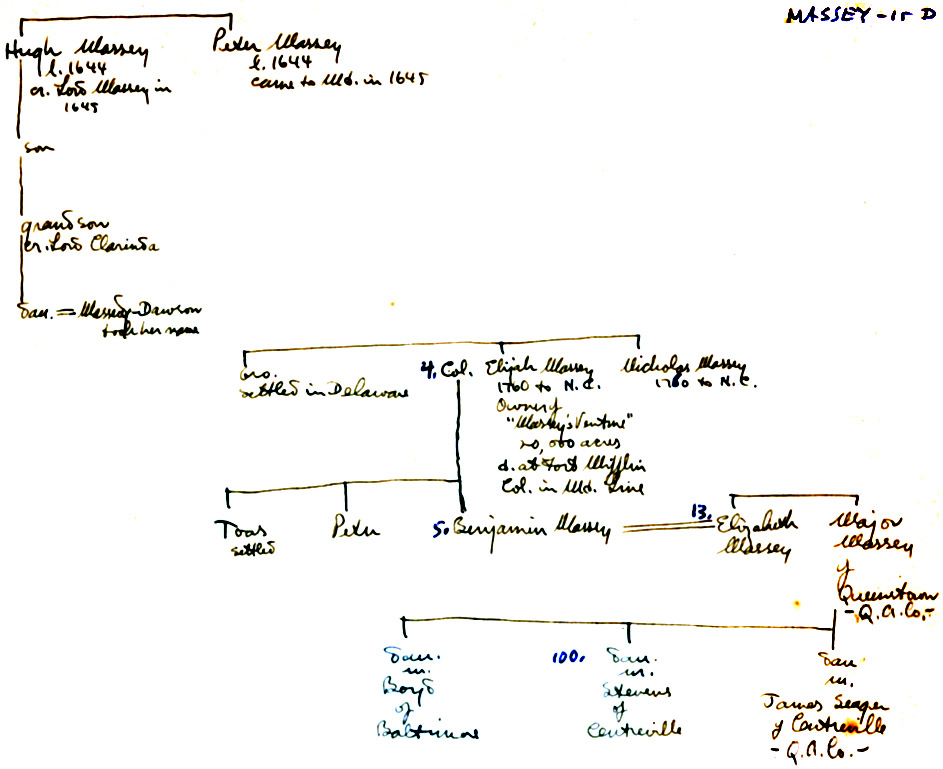 MASSEY - 1r D
Hugh Massey
l. 1644
cr. Lord Massey in
1645
Peter Massey
l. 1644
came to Md. in 1645
son
grandson
cr. Lord Clarinda
dau. = Massey-Dawson
took her name
Bro.
settled in Delaware
4. Col. Elijah Massey
1760 to N.C.
Owner of
"Massey's Venture"
20,000 acres
d. at Fort Mifflin
Col. in Md. Line
Nicholas Massey
1760 to N.C.
Toas
settled
Peter
5. Benjamin Massey
13. Elizabeth
Massey
Major
Massey
of
Queenstown
- Q.A.Co. -
dau.
m.
Boyd
of
Baltimore
100. dau.
m.
Stevens
of
Centreville
dau
m.
James Seager
of Centreville
- Q.A.Co. -